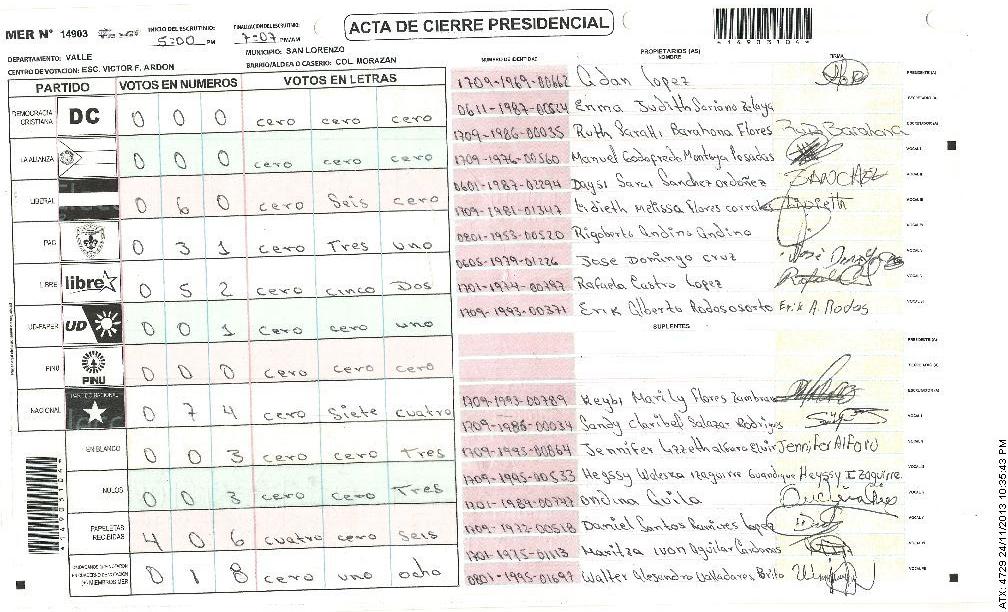 ACTA DE CIERRE PRESIDENCIAL
MER N° 14903
INICIO DEL ESCRUTINIO: 5:00 PM
FINALIZACION DEL ESCRUTINIO: 7:07 PM/AM
DEPARTAMENTO: VALLE
MUNICIPIO: SAN LORENZO
CENTRO DE VOTACION: ESC. VICTOR F. ARDON
BARRIO/ALDEA O CASERIO: COL. MORAZAN
PARTIDO VOTOS EN NUMEROS VOTOS EN LETRAS
DEMOCRACIA CRISTIANA DC 0 0 0 cero cero cero
LA ALIANZA 0 0 0 cero cero cero
LIBERAL 0 6 0 cero Seis cero
PAC 0 3 1 cero Tres uno
LIBRE libre 0 5 2 cero cinco Dos
UD-FAPER UD 0 0 1 cero cero uno
PINU PINU 0 0 0 cero cero cero
NACIONAL PARTIDO NACIONAL 0 7 4 cero Siete cuatro
EN BLANCO 0 0 3 cero cero Tres
NULOS 0 0 3 cero cero Tres
PAPELETAS RECIBIDAS 4 0 6 cuatro cero seis
0 1 8 cero uno ocho
PROPIETARIOS (AS)
NUMERO DE IDENTIDAD NOMBRE FIRMA
1709-1969-00662 Adan Lopez PRESIDENTE (A)
0611-1987-00524 Enma Judith Soriano Zelaya SECRETARIO (A)
1709-1986-00035 Ruth Saratti Barahona Flores Ruth Barahona ESCRUTADOR (A)
1709-1976-00560 Manuel Godofredo Montoya Posadas VOCAL I
0601-1987-02294 Daysi Sarai Sanchez ordoñez SANCHEZ VOCAL II
1709-1981-01347 Lidieth Melissa Flores corrales Lidieth VOCAL III
0801-1953-00520 Rigoberto Andino Andino
0605-1979-01226 Jose Domingo Cruz
1701-1974-00797 Rafaela Castro Lopez Rafaela
1709-1993-00377 Erik Alberto Rodas osorto Erik A. Rodas
SUPLENTES
PRESIDENTE (A)
SECRETARIO (A)
1709-1993-00789 Keyby Marily Flores Zambrano ESCRUTADOR (A)
1709-1986-00034 Sandy Claribel Salazar Rodrigas VOCAL I
1709-1995-00864 Jennifer Lizzeth alfaro Elvir Jennifer Alfaro
1709-1995-00533 Heyssy Waleska Izaguirre Heyssy Izaguirre
1701-1989-00797 Ondina Avila
1709-1972-00518 Daniel Santos Ramires Lopez
1701-1975-01113 Maritza Ivon Aguilar Cardonas
0801-1995-01697 Walter Alejandro Valladares Brito
ATX: 4729 24/11/2013 10:35:43 PM